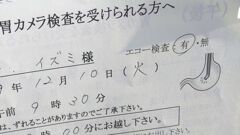 胃カメラ検査を受けられる方へ
イズミ様
エコー検査:有・無
9年12月10日(火)
午前9時30分
は、ずれることがありますのでご了承下さい。
00分にお越し下さい。